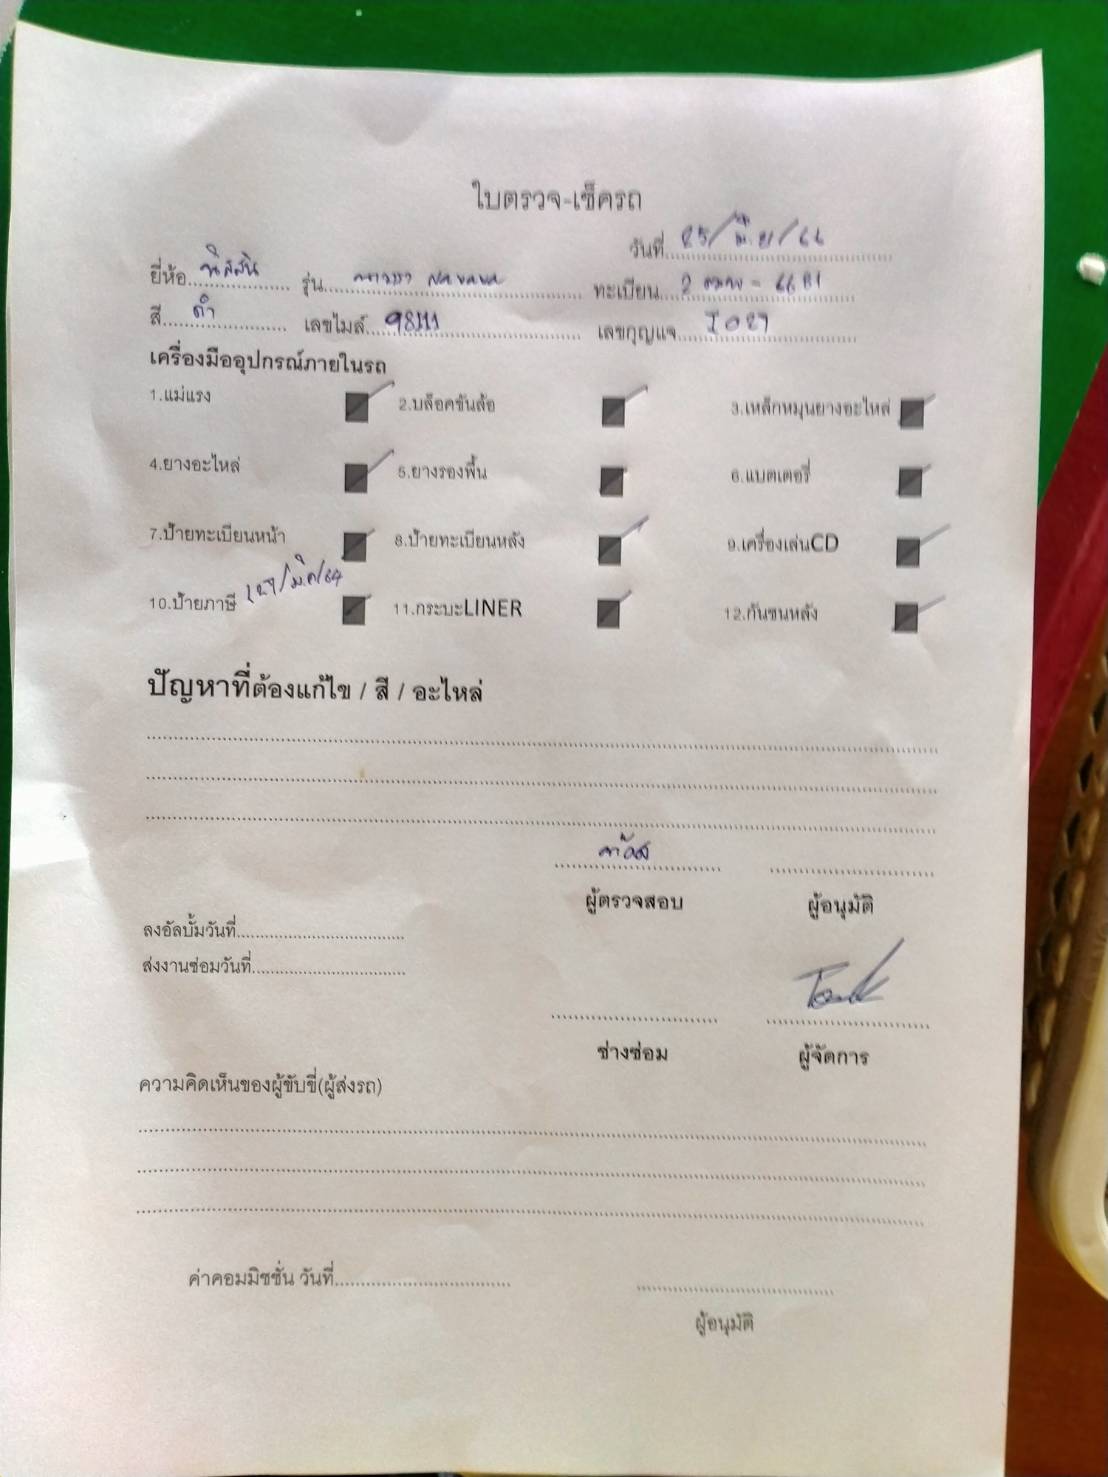 ใบตรวจ-เช็ครถ
วันที่ 25/มิ.ย/66
ยี่ห้อ นิสสัน รุ่น นาวารา NAVARA ทะเบียน 2
สี ดำ เลขไมล์ 98111 เลขกุญแจ I027
เครื่องมืออุปกรณ์ภายในรถ
1.แม่แรง 2.บล็อคขันล้อ 3.เหล็กหมุนยางอะไหล่
4.ยางอะไหล่ 5.ยางรองพื้น 6.แบตเตอรี่
7.ป้ายทะเบียนหน้า 8.ป้ายทะเบียนหลัง 9.เครื่องเล่นCD
10.ป้ายภาษี 11.กระบะLINER 12.กันชนหลัง
ปัญหาที่ต้องแก้ไข / สี / อะไหล่
ผู้ตรวจสอบ ผู้อนุมัติ
ลงอัลบั้มวันที่
ส่งงานซ่อมวันที่
ช่างซ่อม ผู้จัดการ
ความคิดเห็นของผู้ขับขี่(ผู้ส่งรถ)
ค่าคอมมิชชั่น วันที่
ผู้อนุมัติ